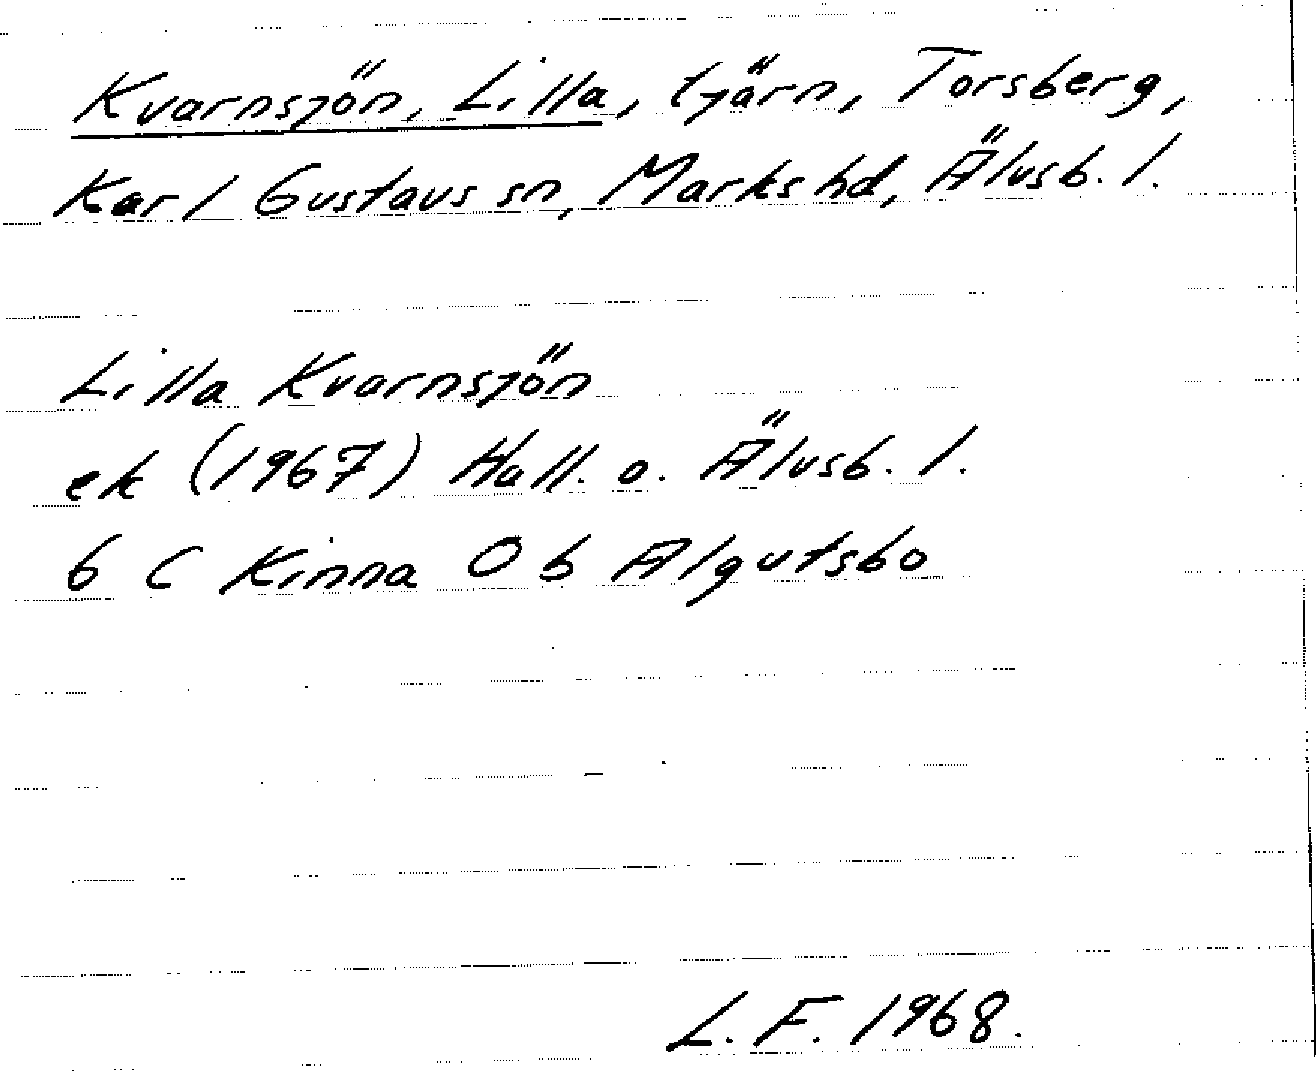 Kvarnsjön, Lilla, tjärn, Torsberg,
Karl Gustavs sn, Marks hd, Älvsb. l.
Lilla Kvarnsjön
ek (1967) Hall. o. Älvsb. l.
6 C Kinna 0 b Algutsbo
L. F. 1968.